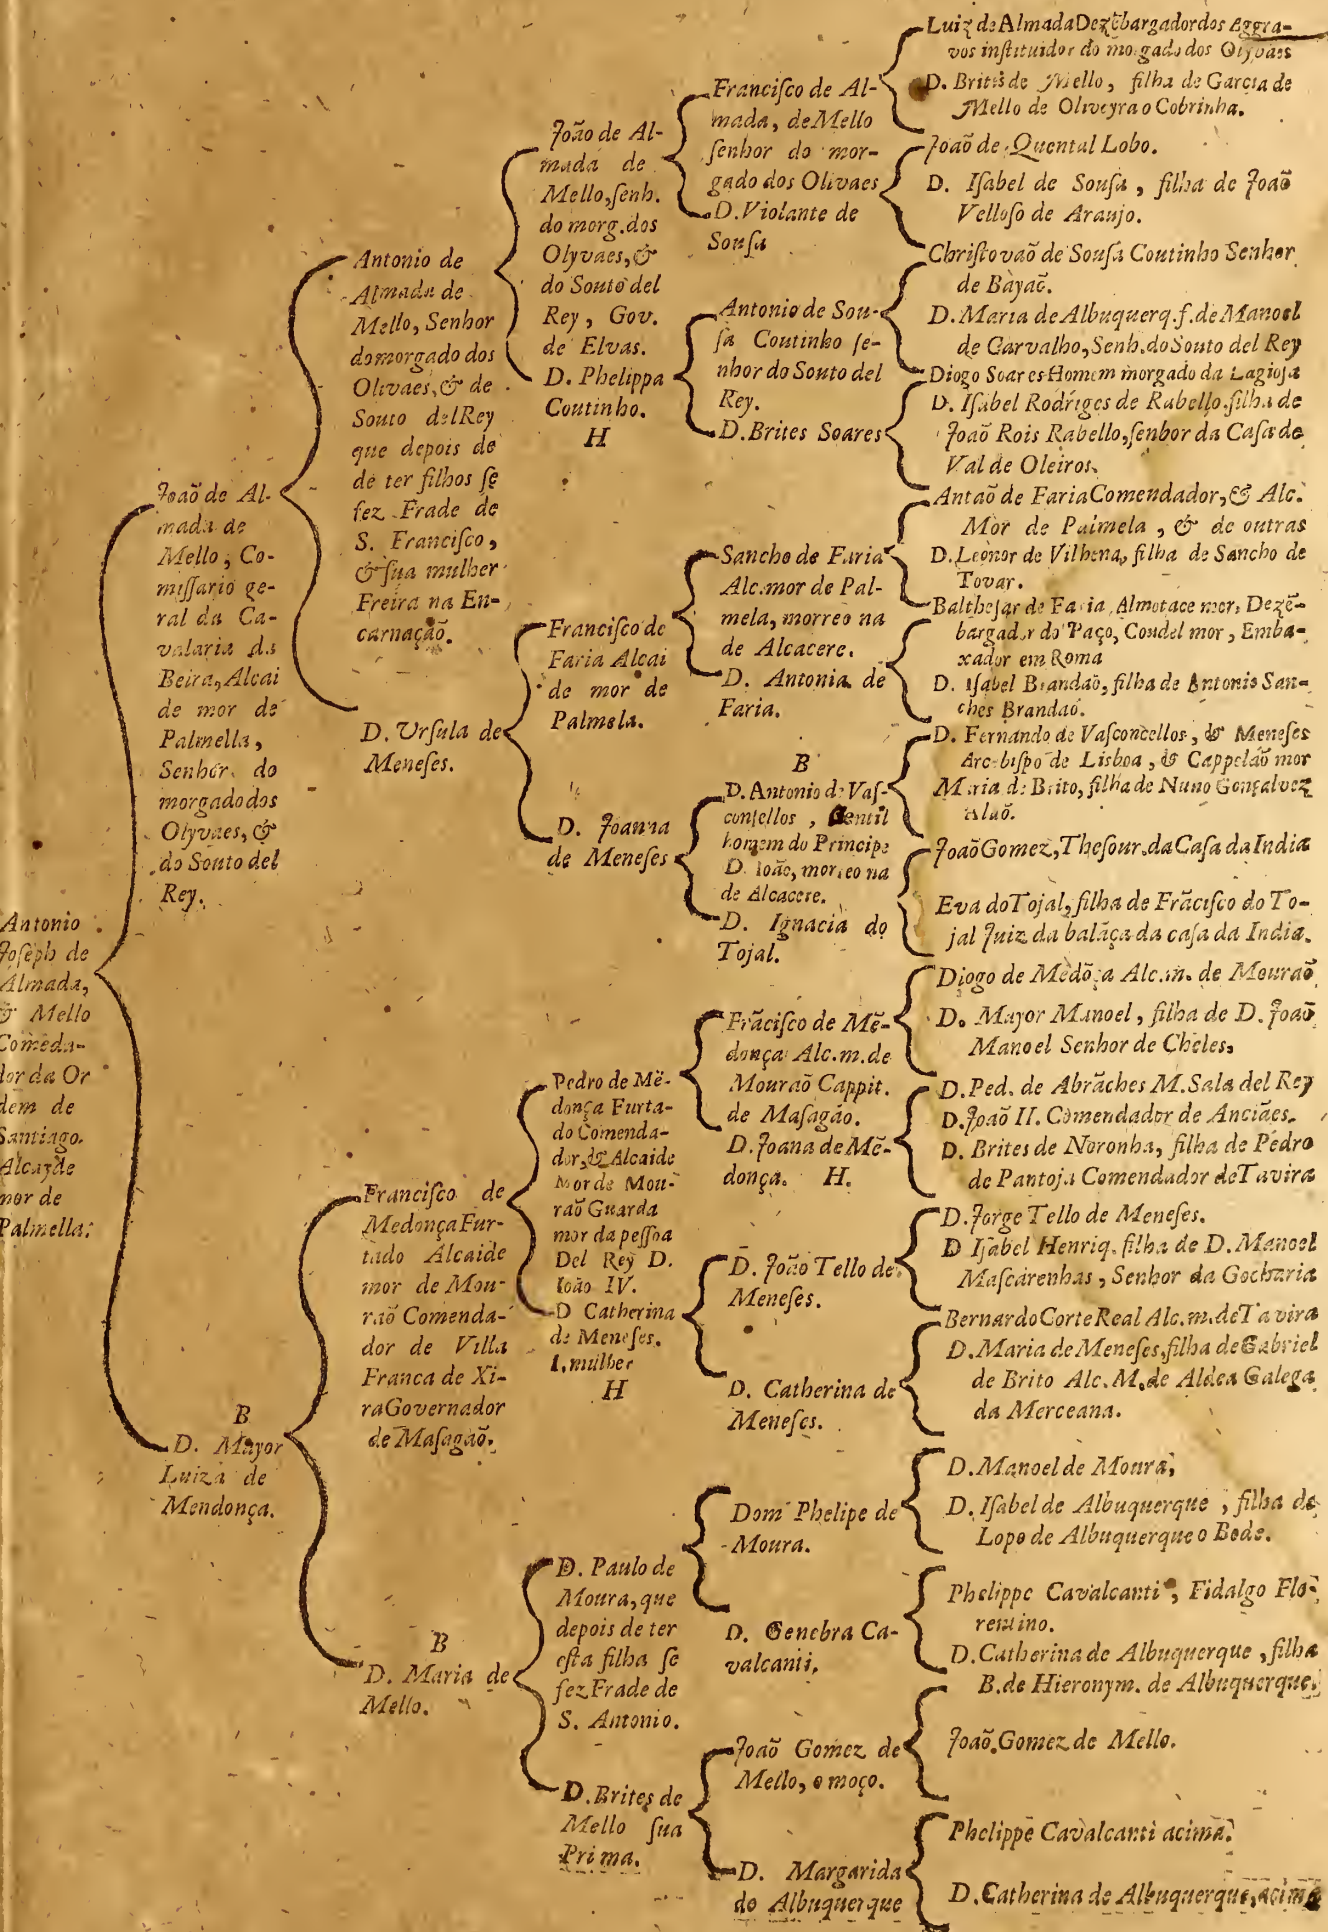 Antonio
Joseph de
Almada,
& Mello
Comēda-
dor da Or
dem de
Santiago.
Alcayde
mor de
Palmella.
Joaõ de Al-
mada de
Mello, Co-
missario ge-
ral da Ca-
valaria da
Beira, Alcai
de mor de
Palmella,
Senhor do
morgado dos
Olyvaes, &
do Souto del
Rey.
B
D. Mayor
Luiza de
Mendonça.
Antonio de
Almada de
Mello, Senhor
do morgado dos
Olivaes, & de
Souto del Rey
que depois de
de ter filhos ſe
fez Frade de
S. Franciſco,
& ſua mulher
Freira na En-
carnação.
D. Urſula de
Meneſes.
Franciſco de
Medonça Fur-
tado Alcaide
mor de Mou-
raõ Comenda-
dor de Villa
Franca de Xi-
ra Governador
de Maſagaõ.
B
D. Maria de
Mello.
João de Al-
mada de
Mello, ſenh.
do morg. dos
Olyvaes, &
do Souto del
Rey, Gov.
de Elvas.
D. Phelippa
Coutinho.
H
Franciſco de
Faria Alcai
de mor de
Palmela.
D. Joanna
de Meneſes
Pedro de Mē-
donça Furta-
do Comenda-
dor, & Alcaide
Mor de Mou-
raõ Guarda
mor da peſſoa
Del Rey D.
Ioão IV.
D Catherina
de Meneſes.
1. mulher
H
D. Paulo de
Moura, que
depois de ter
eſta filha ſe
fez Frade de
S. Antonio.
D. Brites de
Mello ſua
Prima.
Franciſco de Al-
mada, de Mello
ſenhor do mor-
gado dos Olivaes
D. Violante de
Souſa
Antonio de Sou-
ſa Coutinho ſe-
nhor do Souto del
Rey.
D. Brites Soares
Sancho de Faria
Alc. mor de Pal-
mela, morreo na
de Alcacere.
D. Antonia de
Faria.
B
D. Antonio de Vaſ-
concellos, Gentil
homem do Principe
D. Ioão, morreo na
de Alcacere.
D. Ignacia do
Tojal.
Frāciſco de Mē-
donça Alc. m. de
Mouraõ Cappit.
de Maſagão.
D. Joana de Mē-
donça. H.
D. João Tello de
Meneſes.
D. Catherina de
Meneſes.
Dom Phelipe de
Moura.
D. Genebra Ca-
valcanti.
Joaõ Gomez de
Mello, o moço.
D. Margarida
de Albuquerque
Luiz de Almada Dezēbargador dos Aggra-
vos inſtituidor do morgado dos Olyvaes
D. Brites de Mello, filha de Garcia de
Mello de Oliveyra o Cobrinha.
Joaõ de Quental Lobo.
D. Iſabel de Souſa, filha de Joaõ
Velloſo de Araujo.
Chriſtovaõ de Souſa Coutinho Senhor
de Bayaõ.
D. Maria de Albuquerq. f. de Manoel
de Carvalho, Senh. do Souto del Rey
Diogo Soares Homem morgado da Lagioſa
D. Iſabel Rodriges de Rabello filha de
João Rois Rabello, ſenhor da Caſa de
Val de Oleiros.
Antaõ de Faria Comendador, & Alc.
Mor de Palmela, & de outras
D. Leonor de Vilhena, filha de Sancho de
Tovar.
Baltheſar de Faria Almotace mor, Dezē-
bargador do Paço, Coudel mor, Emba-
xador em Roma
D. Iſabel Brandaõ, filha de Antonio San-
ches Brandaõ.
D. Fernando de Vaſconcellos, & Meneſes
Arcebiſpo de Lisboa, & Cappelaõ mor
Maria de Brito, filha de Nuno Gonçalvez
Alaõ.
Joaõ Gomez, Theſour. da Caſa da India
Eva do Tojal, filha de Frāciſco do To-
jal Juiz da balāça da caſa da India.
Diogo de Mēdõça Alc. m. de Mouraõ
D. Mayor Manoel, filha de D. Joaõ
Manoel Senhor de Cheles,
D. Ped. de Abrāches M. Sala del Rey
D. Joaõ II. Comendador de Anciães.
D. Brites de Noronha, filha de Pedro
de Pantoja Comendador de Tavira
D. Jorge Tello de Meneſes.
D Iſabel Henriq. filha de D. Manoel
Maſcarenhas, Senhor da Gocharia
Bernardo Corte Real Alc. m. de Tavira
D. Maria de Meneſes, filha de Gabriel
de Brito Alc. M. de Aldea Galega
da Merceana.
D. Manoel de Moura,
D. Iſabel de Albuquerque, filha de
Lopo de Albuquerque o Bode.
Phelippe Cavalcanti, Fidalgo Flo-
rentino.
D. Catherina de Albuquerque, filha
B. de Hieronym. de Albuquerque.
Joaõ Gomez de Mello.
Phelippe Cavalcanti acima.
D. Catherina de Albuquerque, acima